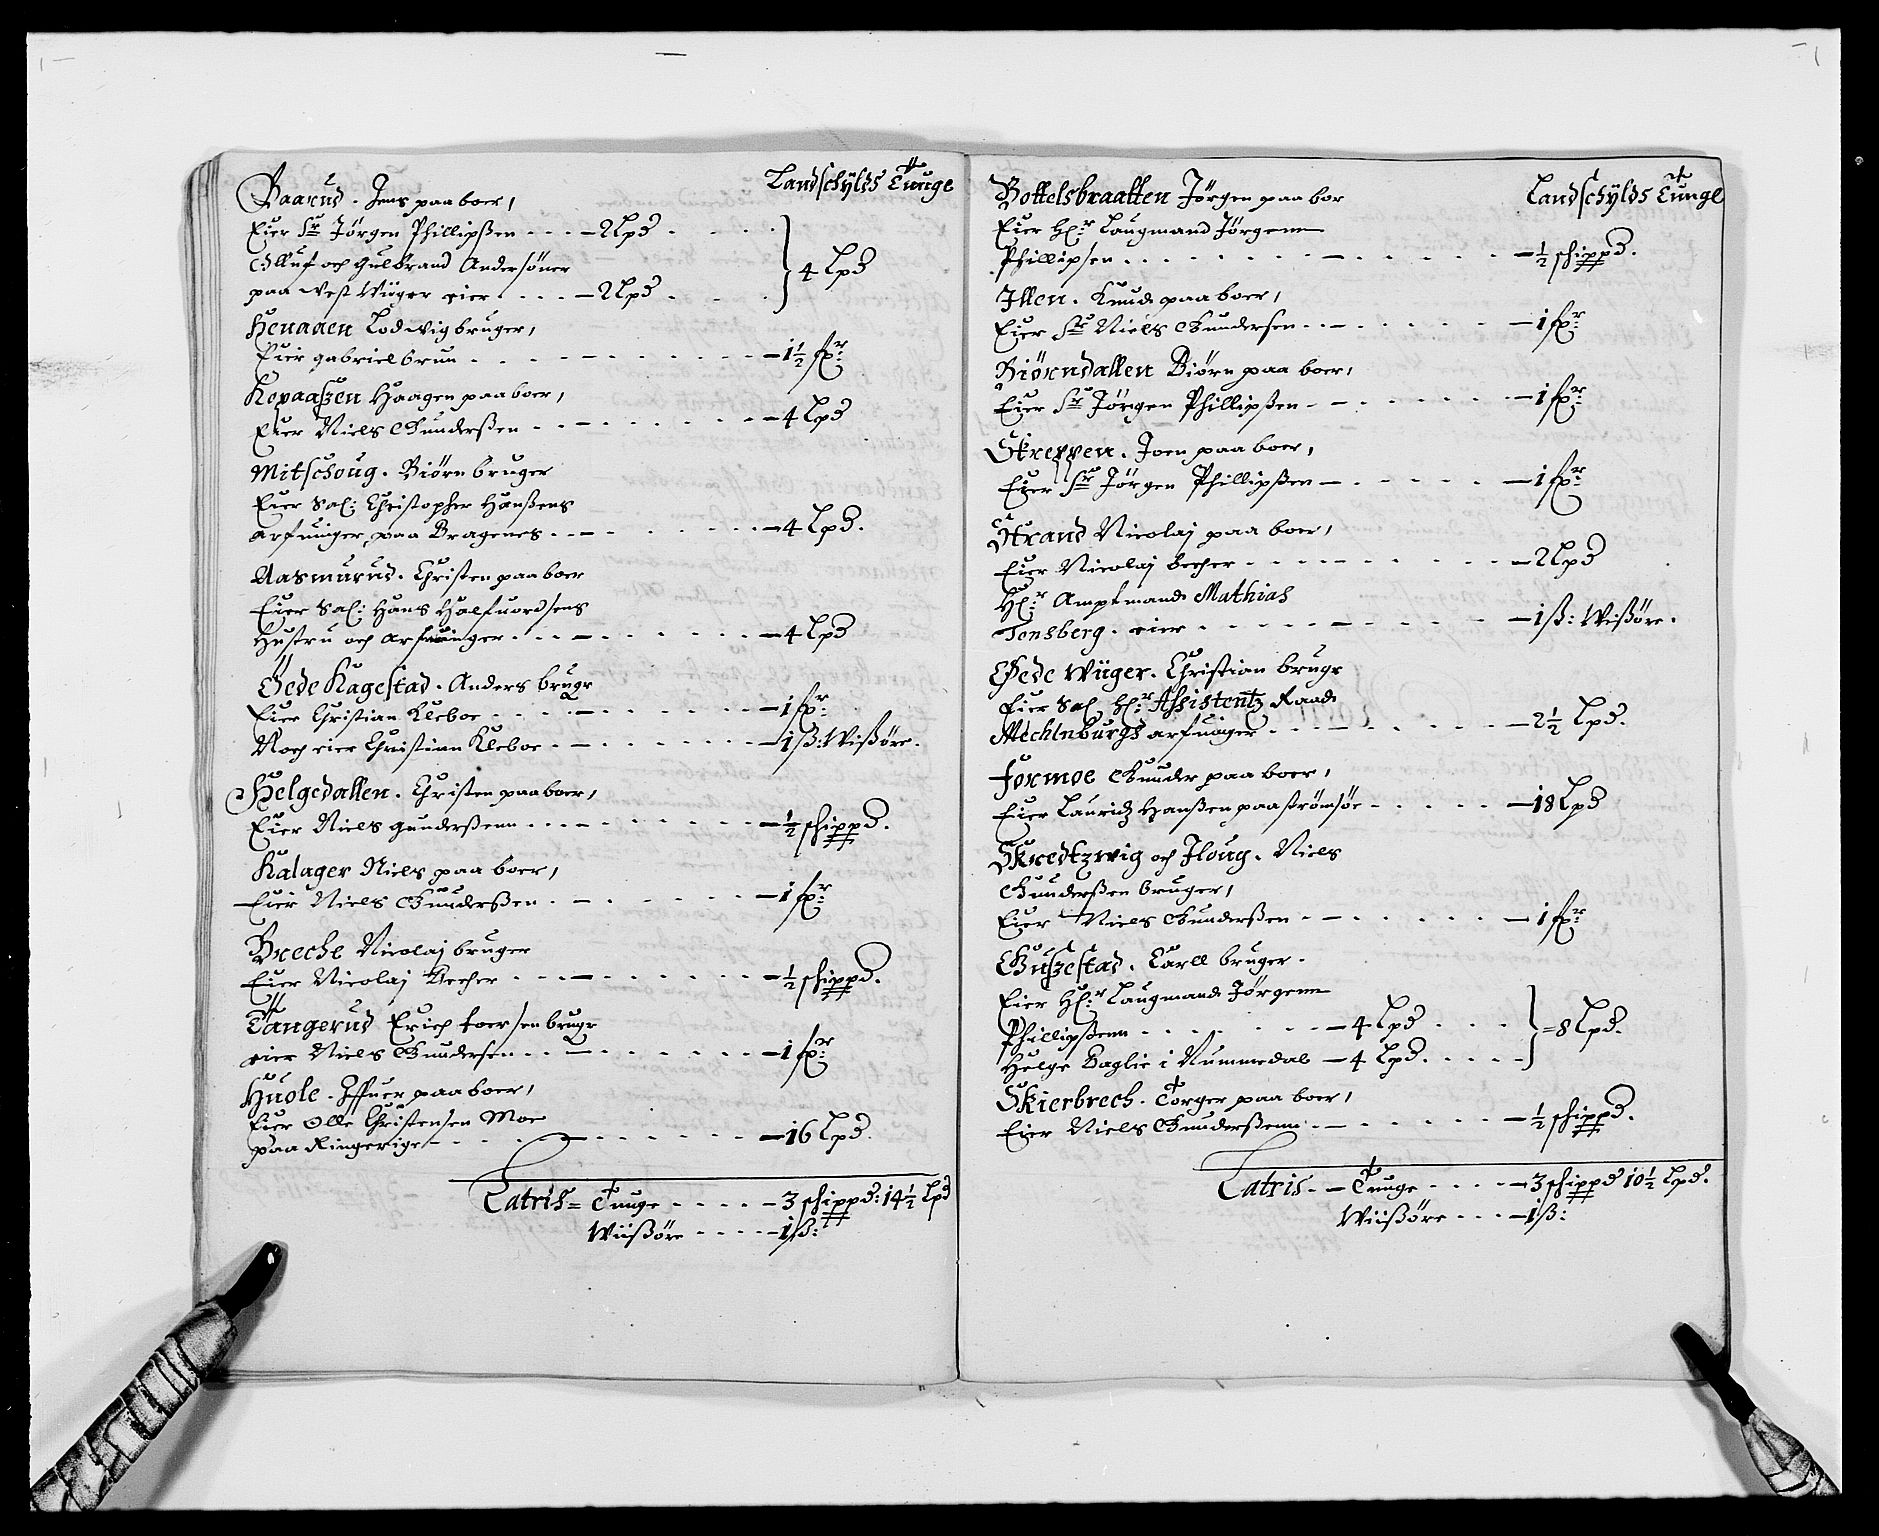 Landschylds Tunge
Baarud. Jens paa boer,
Eier Sr Jørgen Phillipßen - - - - 2 Lpd
Olluf och Gulbrand Andersøner
paa Vest Wüger eier. - - - - 2 Lpd } 4 Lpd
Henaaen Lodwig bruger,
Eier gabriel brun - - - - 1½ fxr:
Kopaaszen Haagen paa boer,
Eier Niels Gunderßen - - - - 4 Lpd
Mitschoug. Biørn bruger
Eier Sal: Christopher Hanßens
arfuinger, paa Bragenes - - - - 4 Lpd.
Aasmurud. Christen paa boer
Eier Sal: Hans Halfuordsens
Hustru och arfuinger - - - - 4 Lpd
Øede Kagestad. Anders brugr
Eier Christian Kleboe - - - - 1 fxr:
Noch eier Christian Kleboe - - - - 1 ß: Wißøre.
Helgedallen. Christen paa boer,
Eier Niels gunderßenn - - - - ½ schippd.
Kalager Niels paa boer,
Eier Niels Gunderßen - - - - 1 fxr:
Breche Nicolaj bruger
Eier Nicolaj Becher - - - - ½ schippd.
Tangerud Erich toersen brugr
eier Niels Gundersen - - - - 1 fxr:
Huole. Iffuer paa boer,
Eier Olle Christensen Moe
paa Ringerige - - - - 16 Lpd.
Latris = Tunge - - - - 3 schippd: 14½ Lpd
Wiißøre - - - - 1 ß:
Landschylds Tunge
Bottelsbraatten Jørgen paa bor
Eier Hr: Laugmand Jørgenn
Phillipsen - - - - ½ schippd.
Illen. Knud paa boer,
Eier Sr Niels Gundersen - - - - 1 fxr:
Biørndallen Biørn paa boer,
Eier Sr Jørgen Phillipßen - - - - 1 fxr:
Streppen. Joen paa boer,
Eier Sr Jørgen Phillipßen - - - - 1 fxr:
Strand Nicolaj paa boer,
Eier Nicolaj becher - - - - 2 Lpd
Hr: Amptmand Mathias
Tonsberg. eier - - - - 1 ß: Wißøre.
Øede Wüger. Christian brugr
Eier Sal. Hr: Assistentz Raad
Mechlnburgs arfuinger - - - - 2½ Lpd.
Formoe Gunder paa boer,
Eier Lauridz Hanßen paa strømsøe - - - - 18 Lpd
Skredtzwig och Iloug. Niels
Gunderßen bruger,
Eier Niels Gunderßen - - - - 1 fxr:
Guszestad. Carll bruger.
Eier Hr: Laugmand Jørgenn
Phillipßenn - - - - 4 Lpd
Helge Baglie i Nummedal - 4 Lpd. } = 8 Lpd.
Skierbrech. Torger paa boer,
Eier Niels Gunderßenn - - - - ½ schippd.
Latris - - Tunge - - - - 3 schippd 10½ Lpd.
Wiißøre - - - 1 ß: